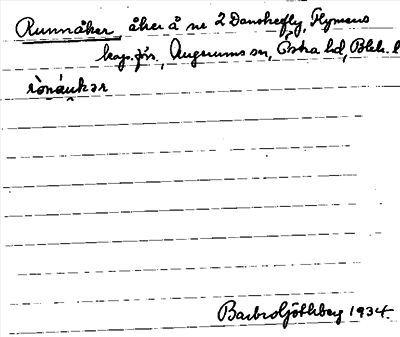 Runnåker, åker å nr 2 Danskefly, Flymens
kap. förs., Augerums sn, Östra hd, Blek. l
rònáukər
Barbro Göthberg 1934.